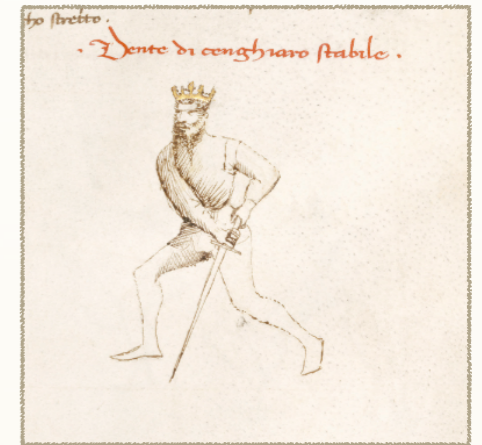 ho stretto.
· Dente di cenghiaro stabile ·